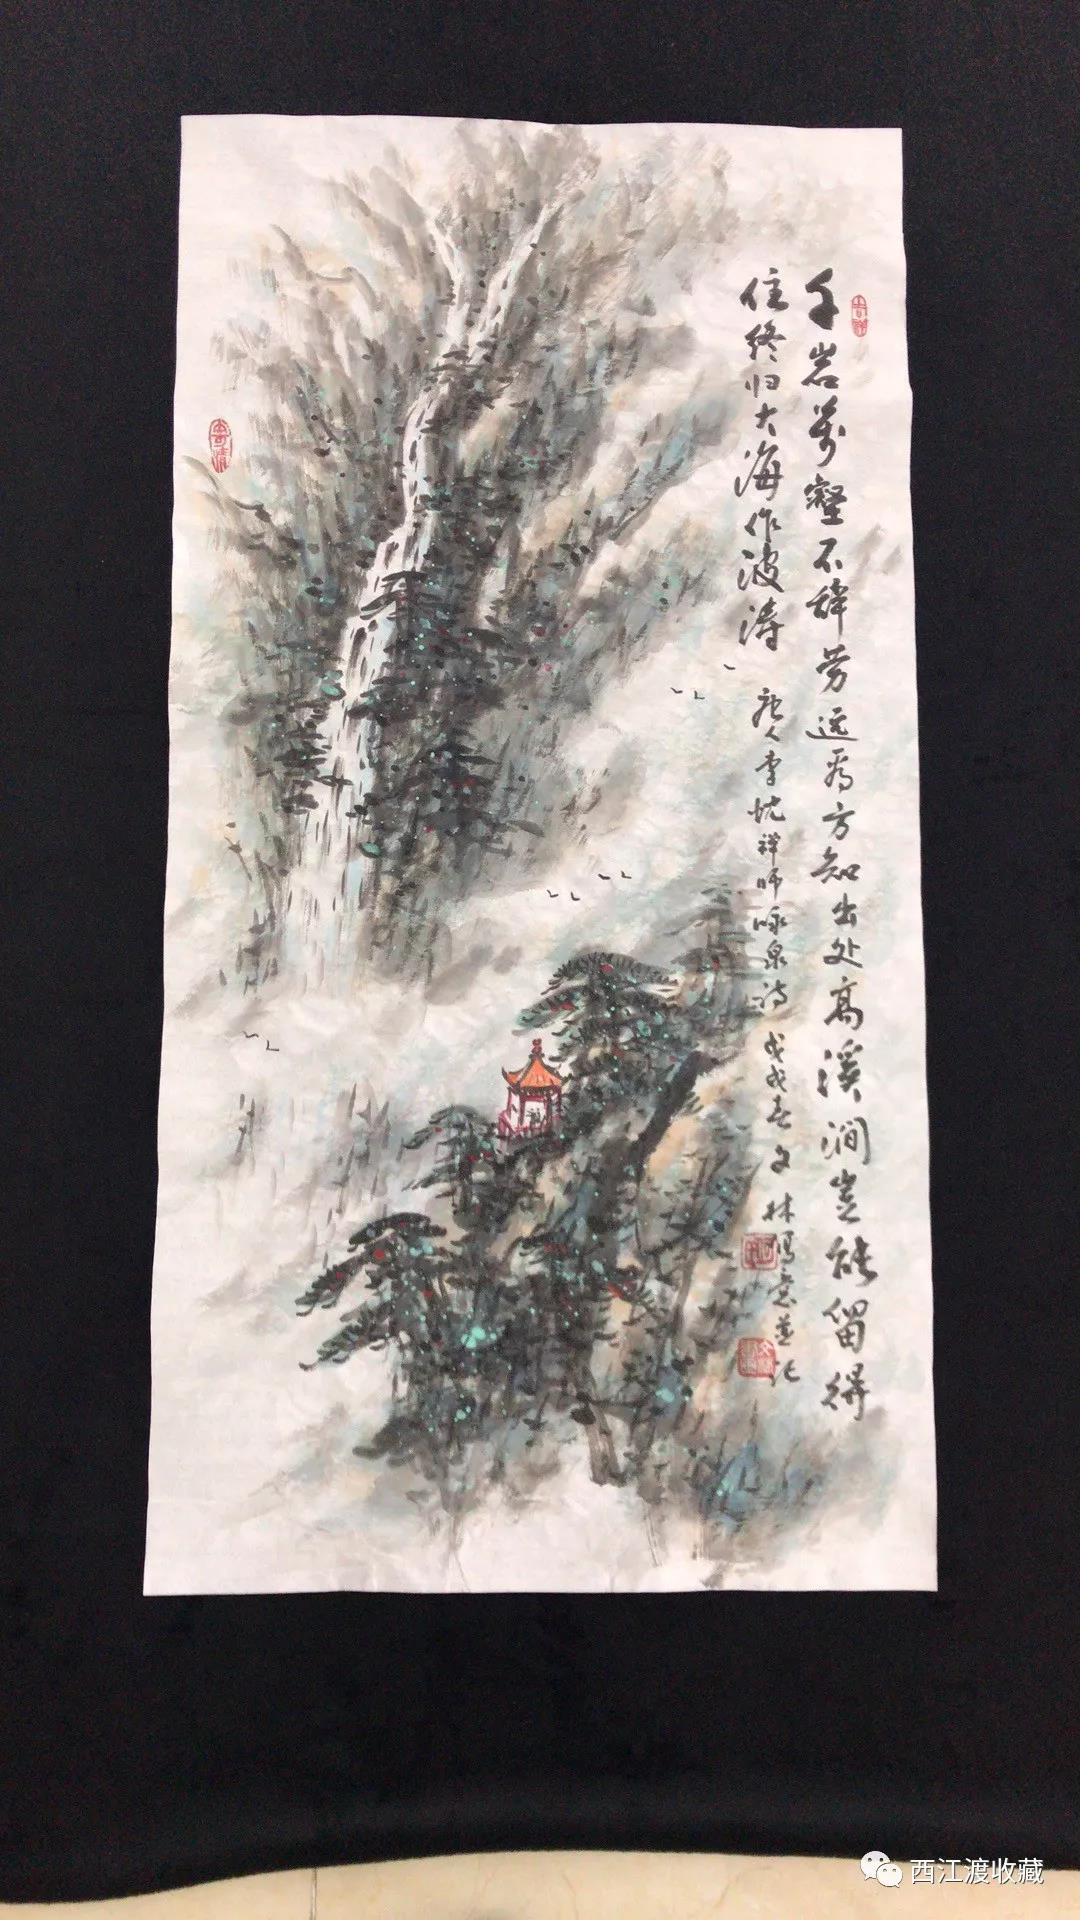 千岩萬壑不辞劳远看方知出处高溪涧岂能留得
住终归大海作波涛
唐人李忱禅师咏泉诗 戊戌春文林写意并记
西江渡收藏